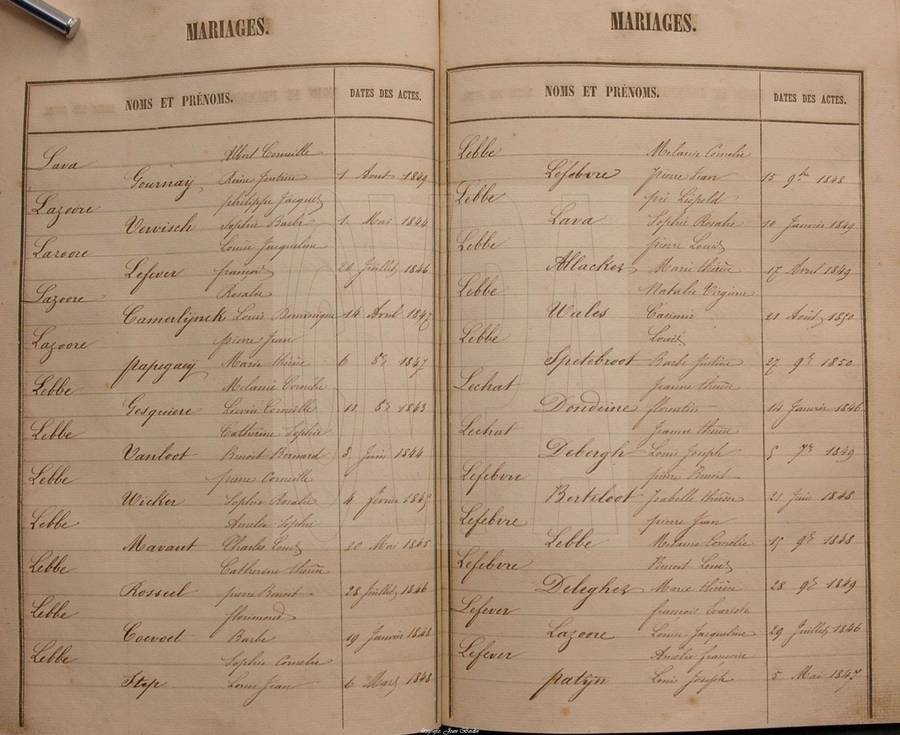 MARIAGES.
NOMS ET PRÉNOMS. DATES DES ACTES.
Lava Albert Corneille
Gournay Reine Justine 1 Aout 1849
Lazoore philippe Jacques
Vervisch Sophie Barbe 1 Mai 1844
Lazoore Louise Jacqueline
Lefever françois 29 Juillet 1846
Lazoore Rosalie
Camerlijnck Louis Dominique 14 Avril 1847
Lazoore pierre Jean
papegaey Marie thérèse 6 8re 1847
Lebbe Melanie Cornélie
Gesquiere Liévin Corneille 8re 1843
Lebbe Catherine Sophie
Vanloot Benoit Bernard 3 Juin 1844
Lebbe pierre Corneille
Wicker Sophie Rosalie 4 février
Lebbe Amelie Sophie
Mavant Charles Louis 20 Mai 1845
Lebbe Catherine thérèse
Rosseel pierre Benoit 28 Juillet 1846
Lebbe florimond
Coevoet Barbe 19 Janvier 1848
Lebbe Sophie Cornelie
Stop Louis Jean 6 Mars 1848
MARIAGES.
NOMS ET PRÉNOMS. DATES DES ACTES.
Lebbe Melanie Cornelie
Léfebvre pierre Jean 15 9bre 1848
Lebbe Léopold
Lava Sophie Rosalie 10 Janvier 1849
Lebbe pierre Louis
Allackes Marie thérèse 17 Avril 1849
Lebbe Natalie Virginie
Wales Casimir 21 Août 1850
Lebbe Louis
Spetebroot Barbe Justine 27 9re 1850
Lechat Jeanne thérèse
Dondeine florentin 14 Janvier 1846
Lechat Jeanne thérèse
Debergh Louis Joseph 5 7re 1849
Lefebvre pierre Benoit
Berteloot Isabelle thérèse 21 Juin 1848
Lefebvre pierre Jean
Lebbe Melanie Cornélie 15 9re 1848
Lefebvre Benoit Louis
Deleghes Marie thérèse 28 9re 1849
Lefever françois Evariste
Lazoore Louise Jacqueline 29 Juillet 1846
Lefever Amelie françoise
patyn Louis Joseph 5 Mai 1847